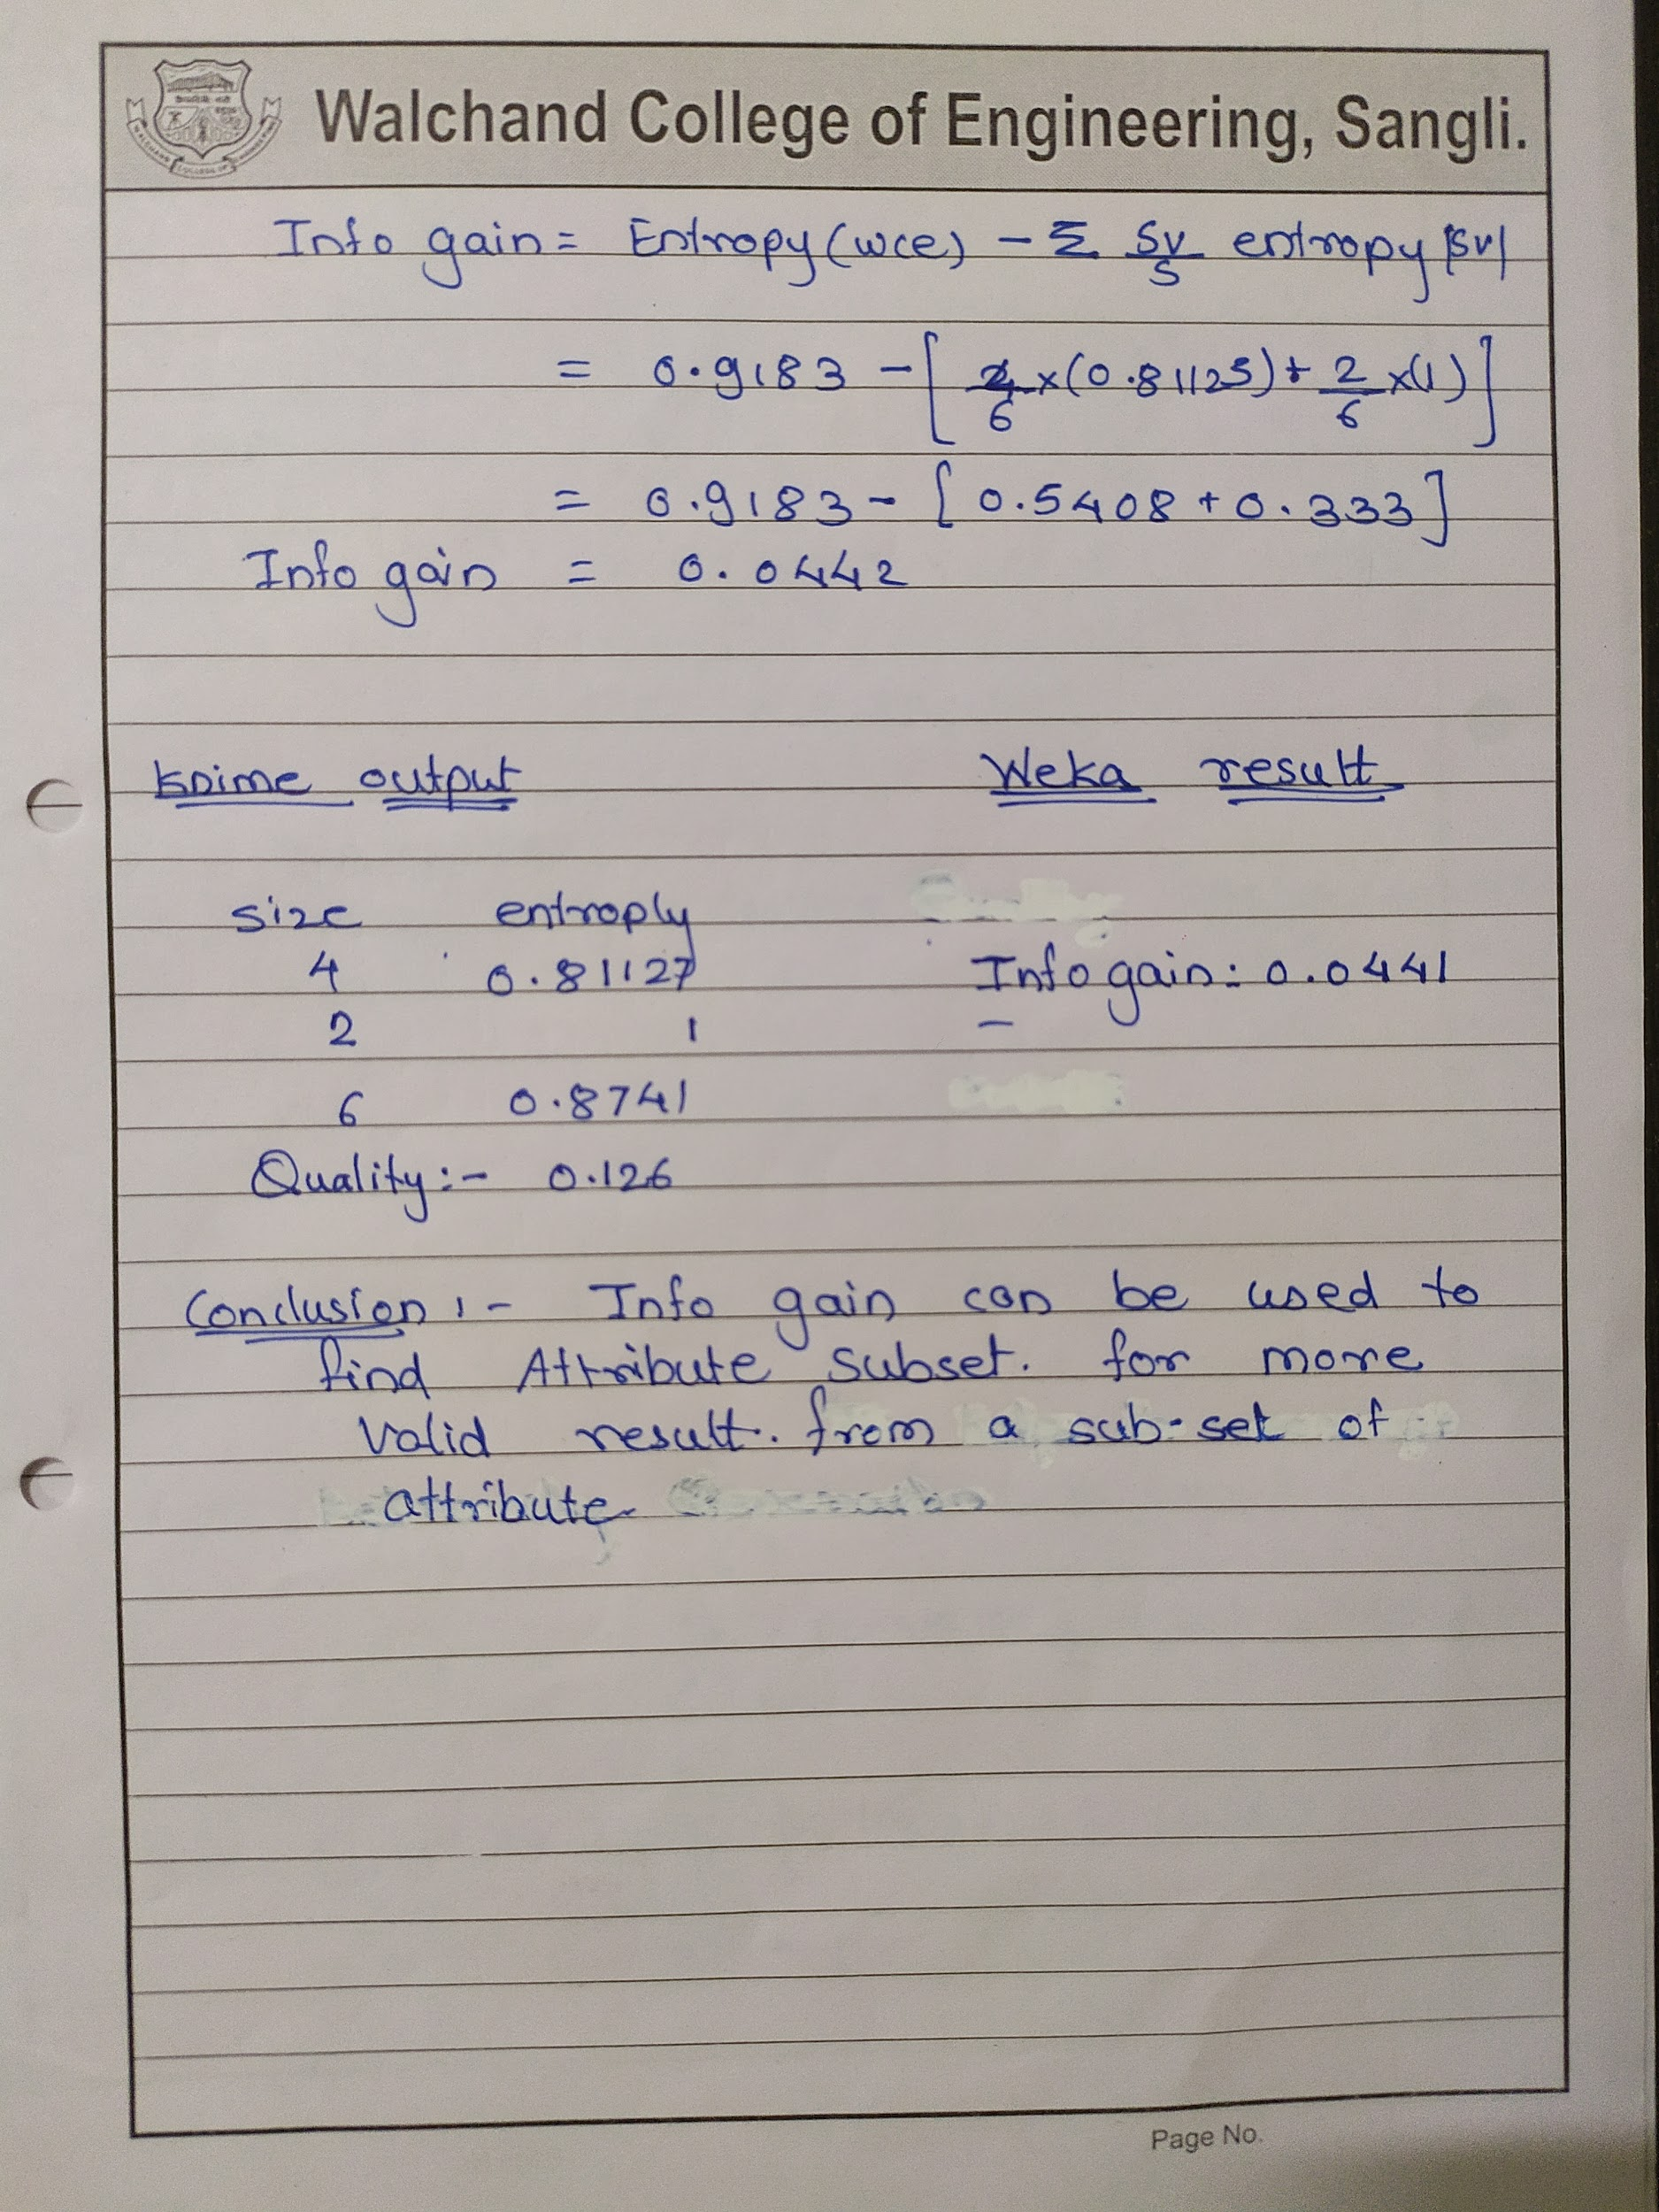 Walchand College of Engineering, Sangli.
Info gain = Entropy (wce) - Σ Sv/S entropy |Sv|
= 0.9183 - [ 4/6 x (0.81125) + 2/6 x (1) ]
= 0.9183 - [ 0.5408 + 0.333 ]
Info gain = 0.0442
Knime output Weka result
Size entroply
4 0.81127 Info gain: 0.0441
2 1 -
6 0.8741
Quality :- 0.126
Conclusion :- Info gain can be used to
find Attribute subset. for more
valid result. from a sub-set of
attribute
Page No.